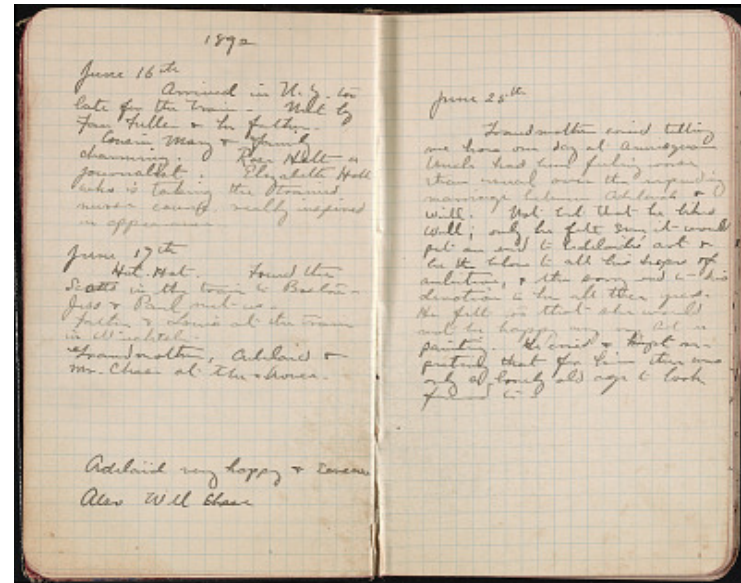 1892
June 16th
Arrived in N.Y. too
late for the train - Met by
Fuller & her father.
Cousin Mary &
charming. Rose Holt a
journalist. Elizabeth Holt
who is taking the trained
nurses course really inspired
in appearance.
June 17th
Hot. Hot. Found the
Scotts in the train to Boston -
Jess & Paul met us -
Father & Louis at the train
in
Grandmother, Adelaid &
Mr. Chase at the house.
Adelaid very happy & serene
Also Will Chase
June 25th
Grandmother cried telling
me how one day at
Uncle had been feeling worse
than usual over the impending
marriage between Adelaid &
Will. Not but that he liked
Will; only he felt sure it would
put an end to Adelaide's art &
be the blow to all his hopes of
ambition, & the sorry end to his
devotion to her all these years.
He felt so that she would
not be happy
painting. He cried & kept re-
peating that for him there was
only a lonely old age to look
forward to -